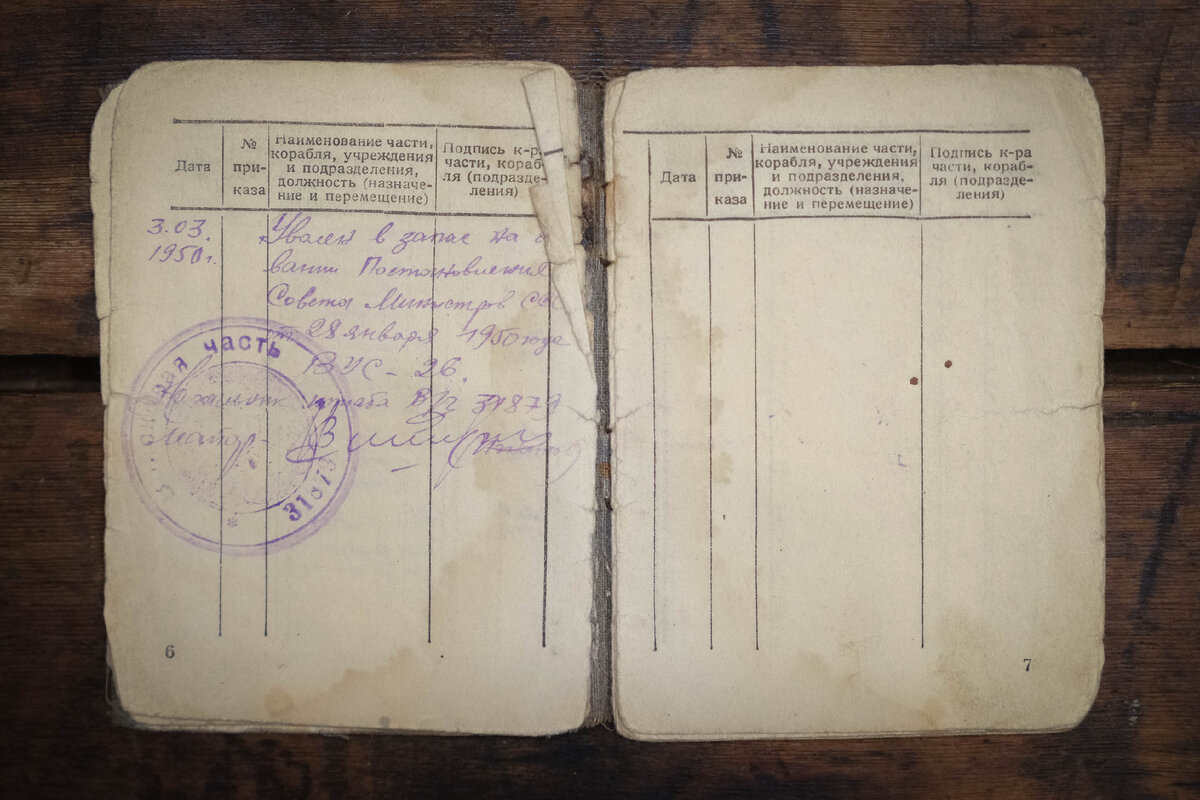 Дата
№ при- каза
Наименование части,
корабля, учреждения
и подразделения,
должность (назначе-
ние и перемещение)
Подпись к-ра
части, кораб-
ля (подразде-
ления)
3.03.
1950 г.
Уволен в запас на
вании Постановления
Совета Министров СС
от 28 января 1950 года
ВУС - 26.
Начальник штаба В/Ч 31879
майор -
часть
3187
6
Дата
№ при- каза
Наименование части,
корабля, учреждения
и подразделения,
должность (назначе-
ние и перемещение)
Подпись к-ра
части, кораб-
ля (подразде-
ления)
7